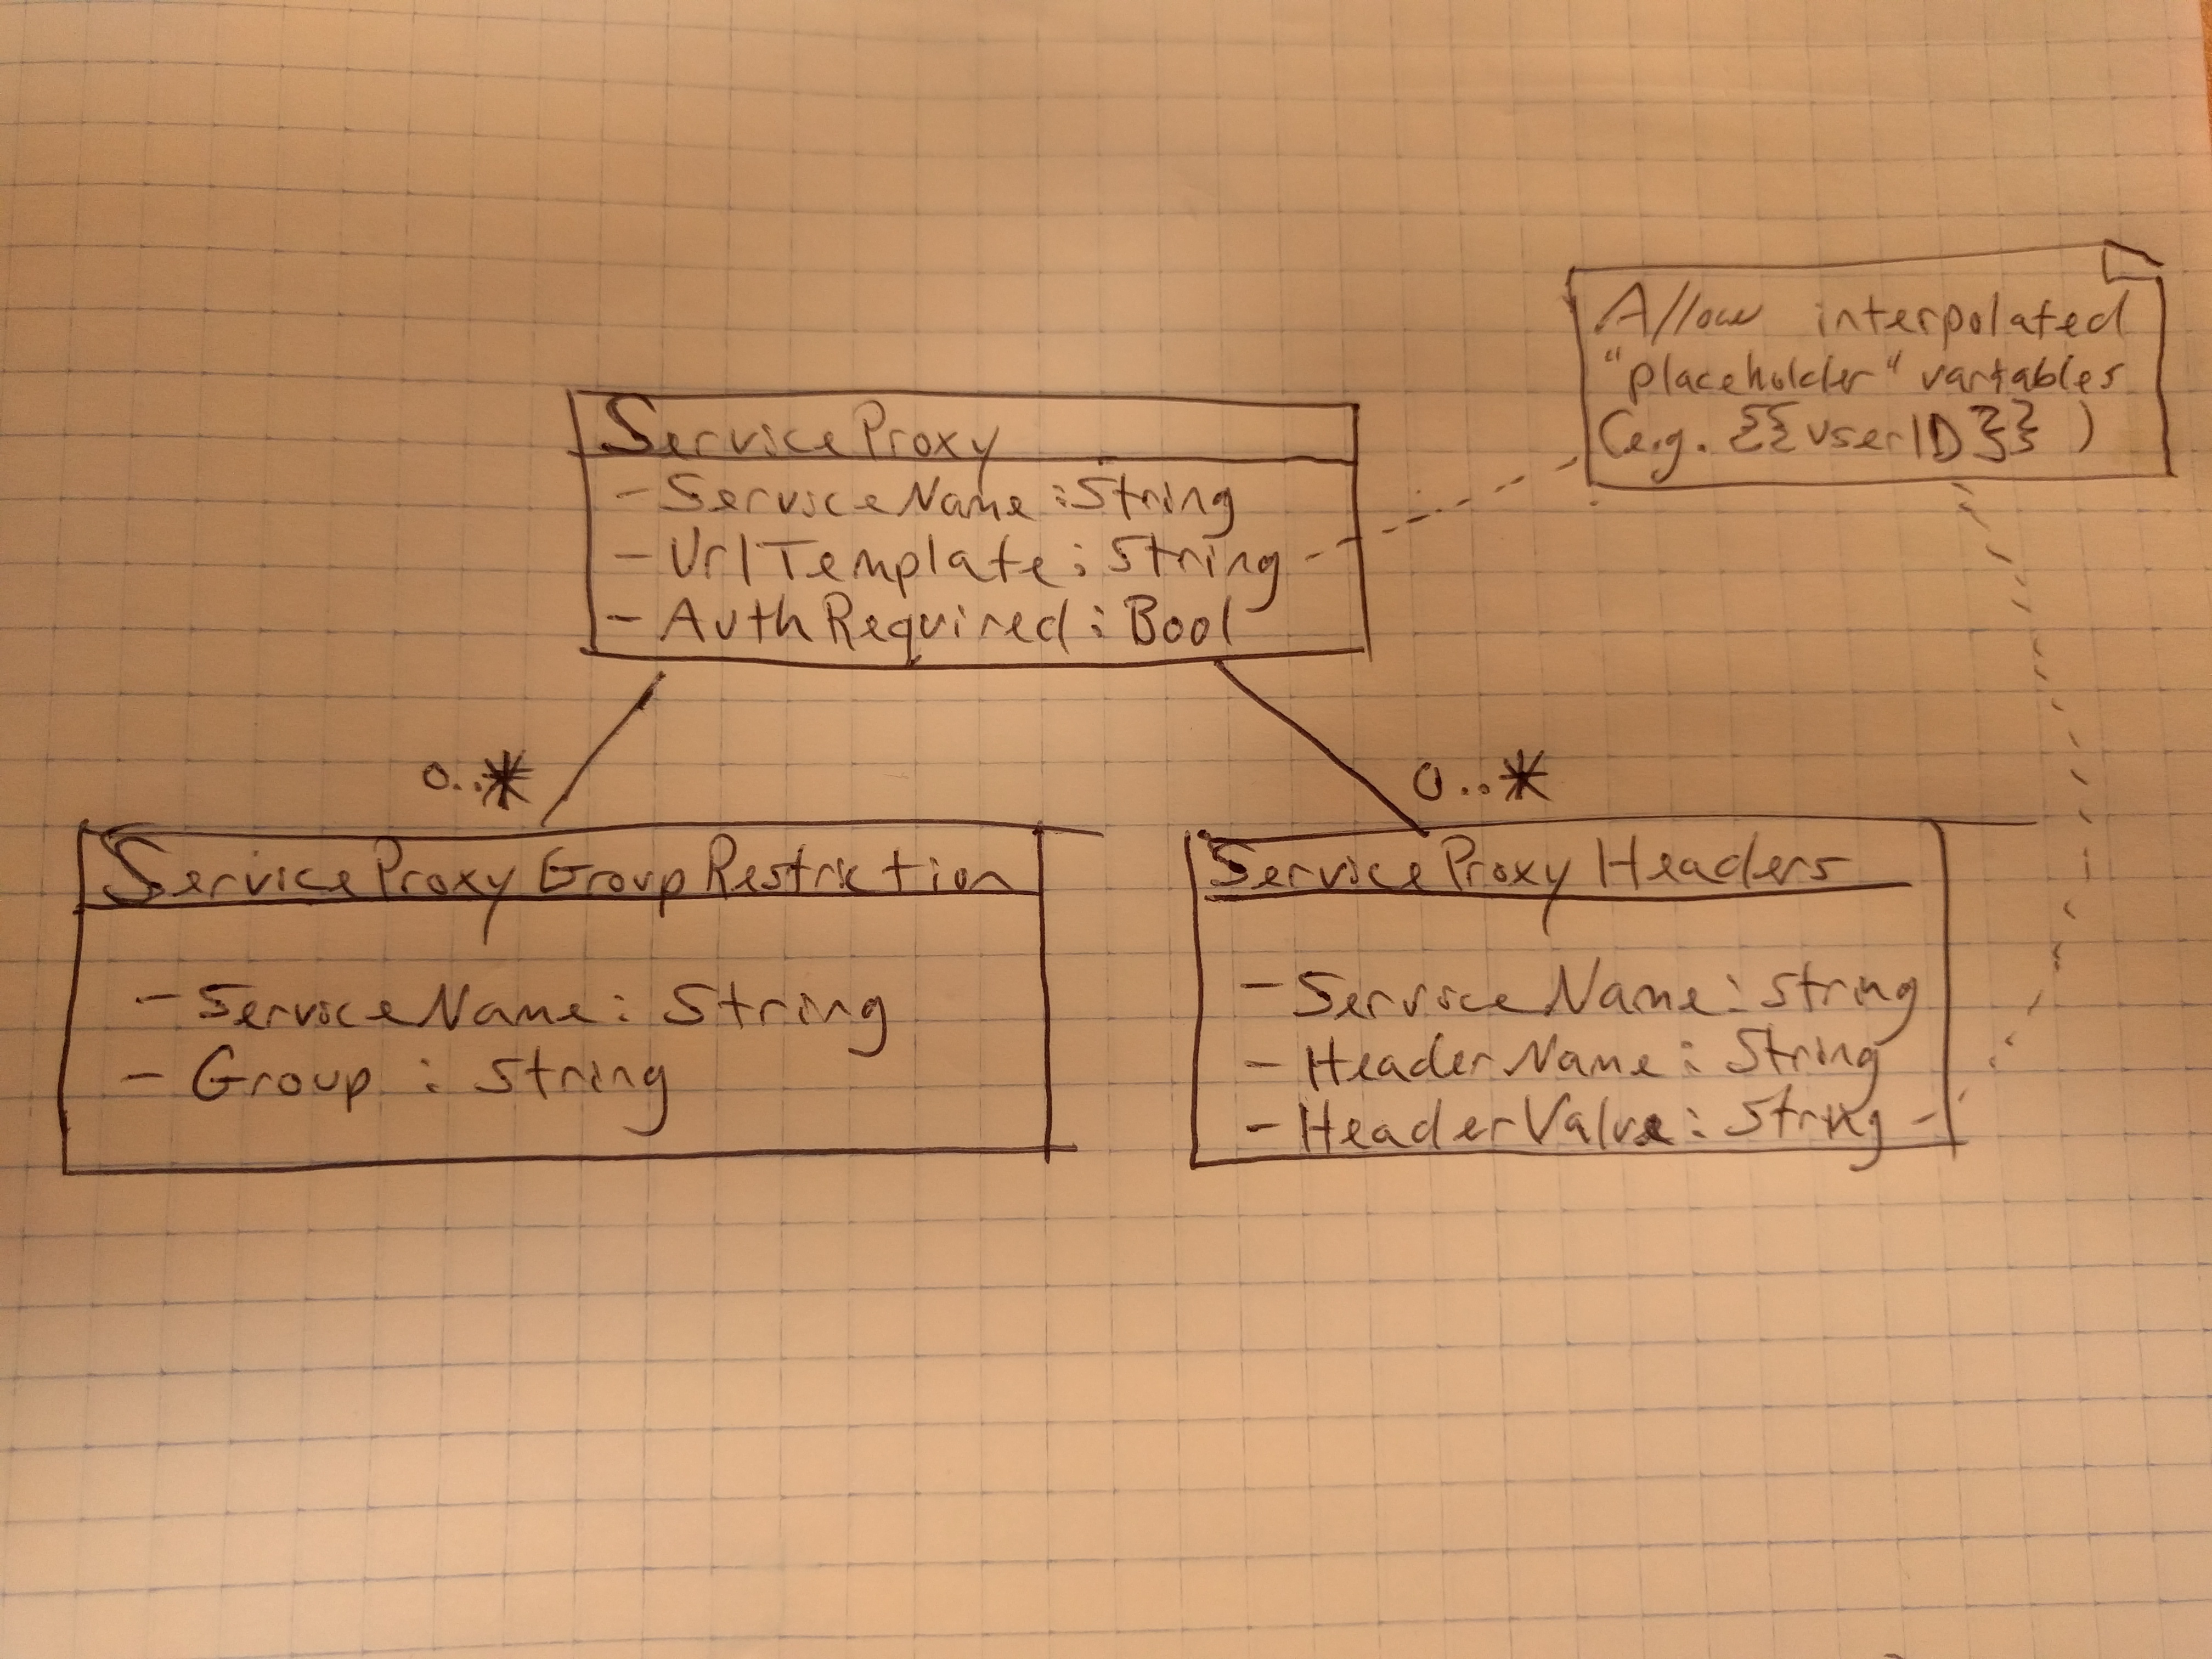 Allow interpolated
"placeholder" variables
(e.g. {{userID}} )
ServiceProxy
- ServiceName : String
- UrlTemplate : String
- AuthRequired : Bool
0..*
0..*
ServiceProxyGroupRestriction
- ServiceName : String
- Group : String
ServiceProxyHeaders
- ServiceName : String
- HeaderName : String
- HeaderValue : String